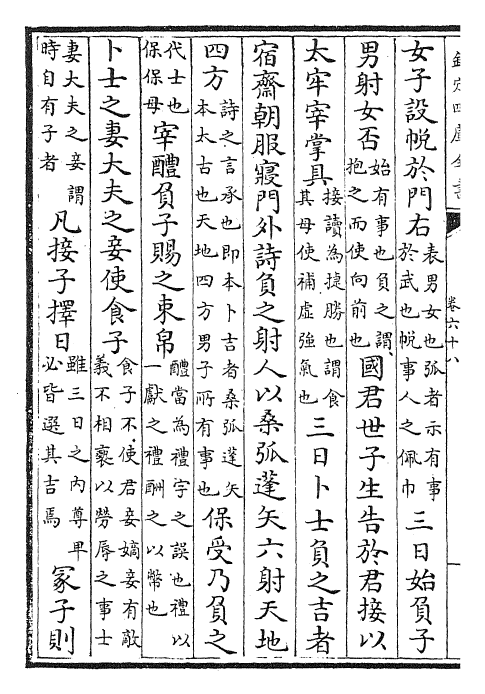 欽定四庫全書
卷六十八
女子設帨於門右表男女也弧者示有事於武也帨事人之佩巾三日始負子
男射女否始有事也負之謂抱之而使向前也國君世子生告於君接以
太牢宰掌具接讀為捷勝也謂食其母使補虛強氣也三日卜士負之吉者
宿齋朝服寢門外詩負之射人以桑弧蓬矢六射天地
四方詩之言承也即本卜吉者桑弧蓬矢本太古也天地四方男子所有事也保受乃負之
代士也保保母宰醴負子賜之束帛醴當為禮字之誤也禮以一獻之禮酬之以幣也
卜士之妻大夫之妾使食子食子不使君妾嫡妾有敵義不相褻以勞辱之事士
妻大夫之妾謂時自有子者凡接子擇日雖三日之內尊卑必皆選其吉焉冢子則